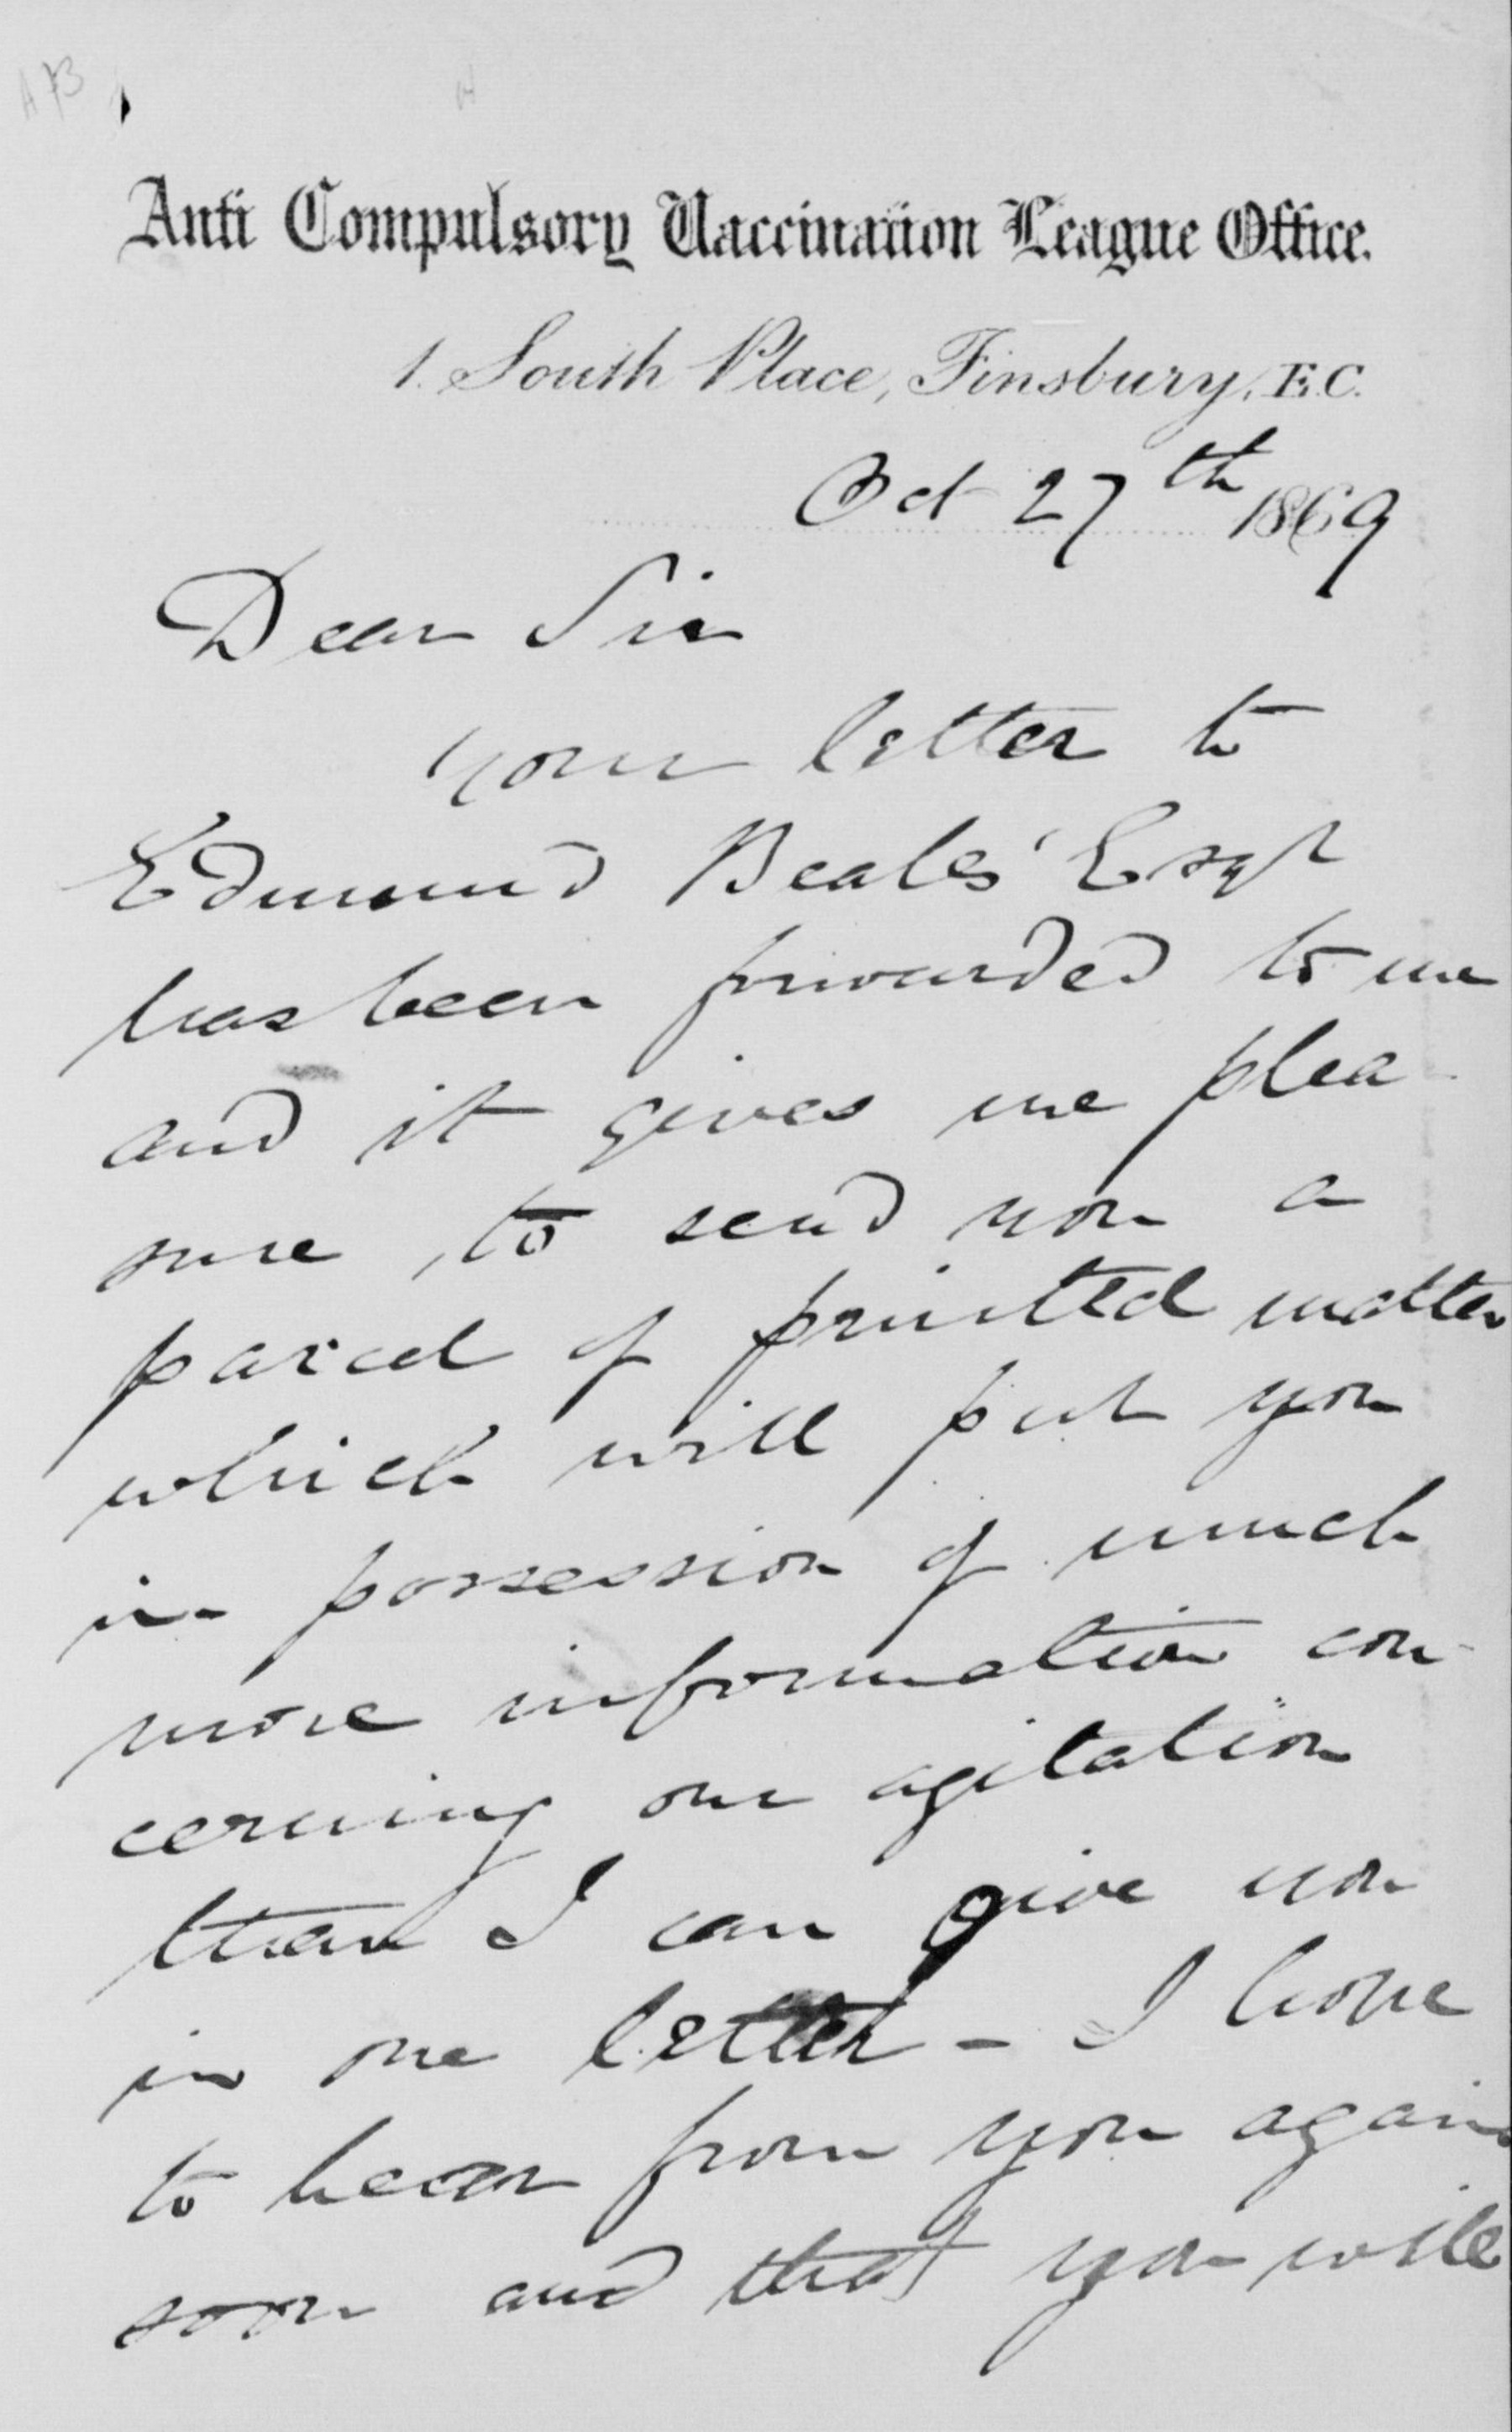 Anti Compulsory Vaccination League Office.
1. South Place, Finsbury, E.C.
Oct 27th 1869
Dear Sir
your letter to
Edmund Beales Esqr
has been forwarded to me
and it gives me plea-
sure, to send you a
parcel of printed matter
which will put you
in possession of much
more information con-
cerning our agitation
than I can give you
in one letter - I hope
to hear from you again
soon and that you will